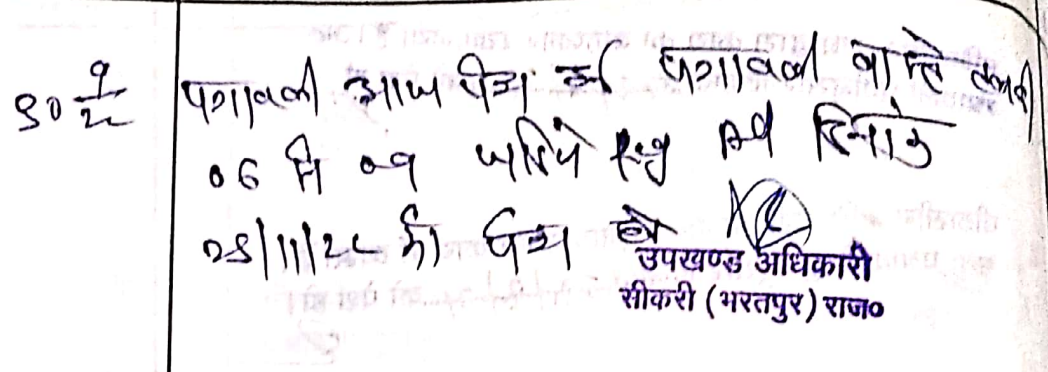 30 9/22
पत्रावली आज पेश हुई पत्रावली वास्ते तलबी
06 नि 09 जरिये
28/11/22 को पेश हो
उपखण्ड अधिकारी
सीकरी (भरतपुर) राज०